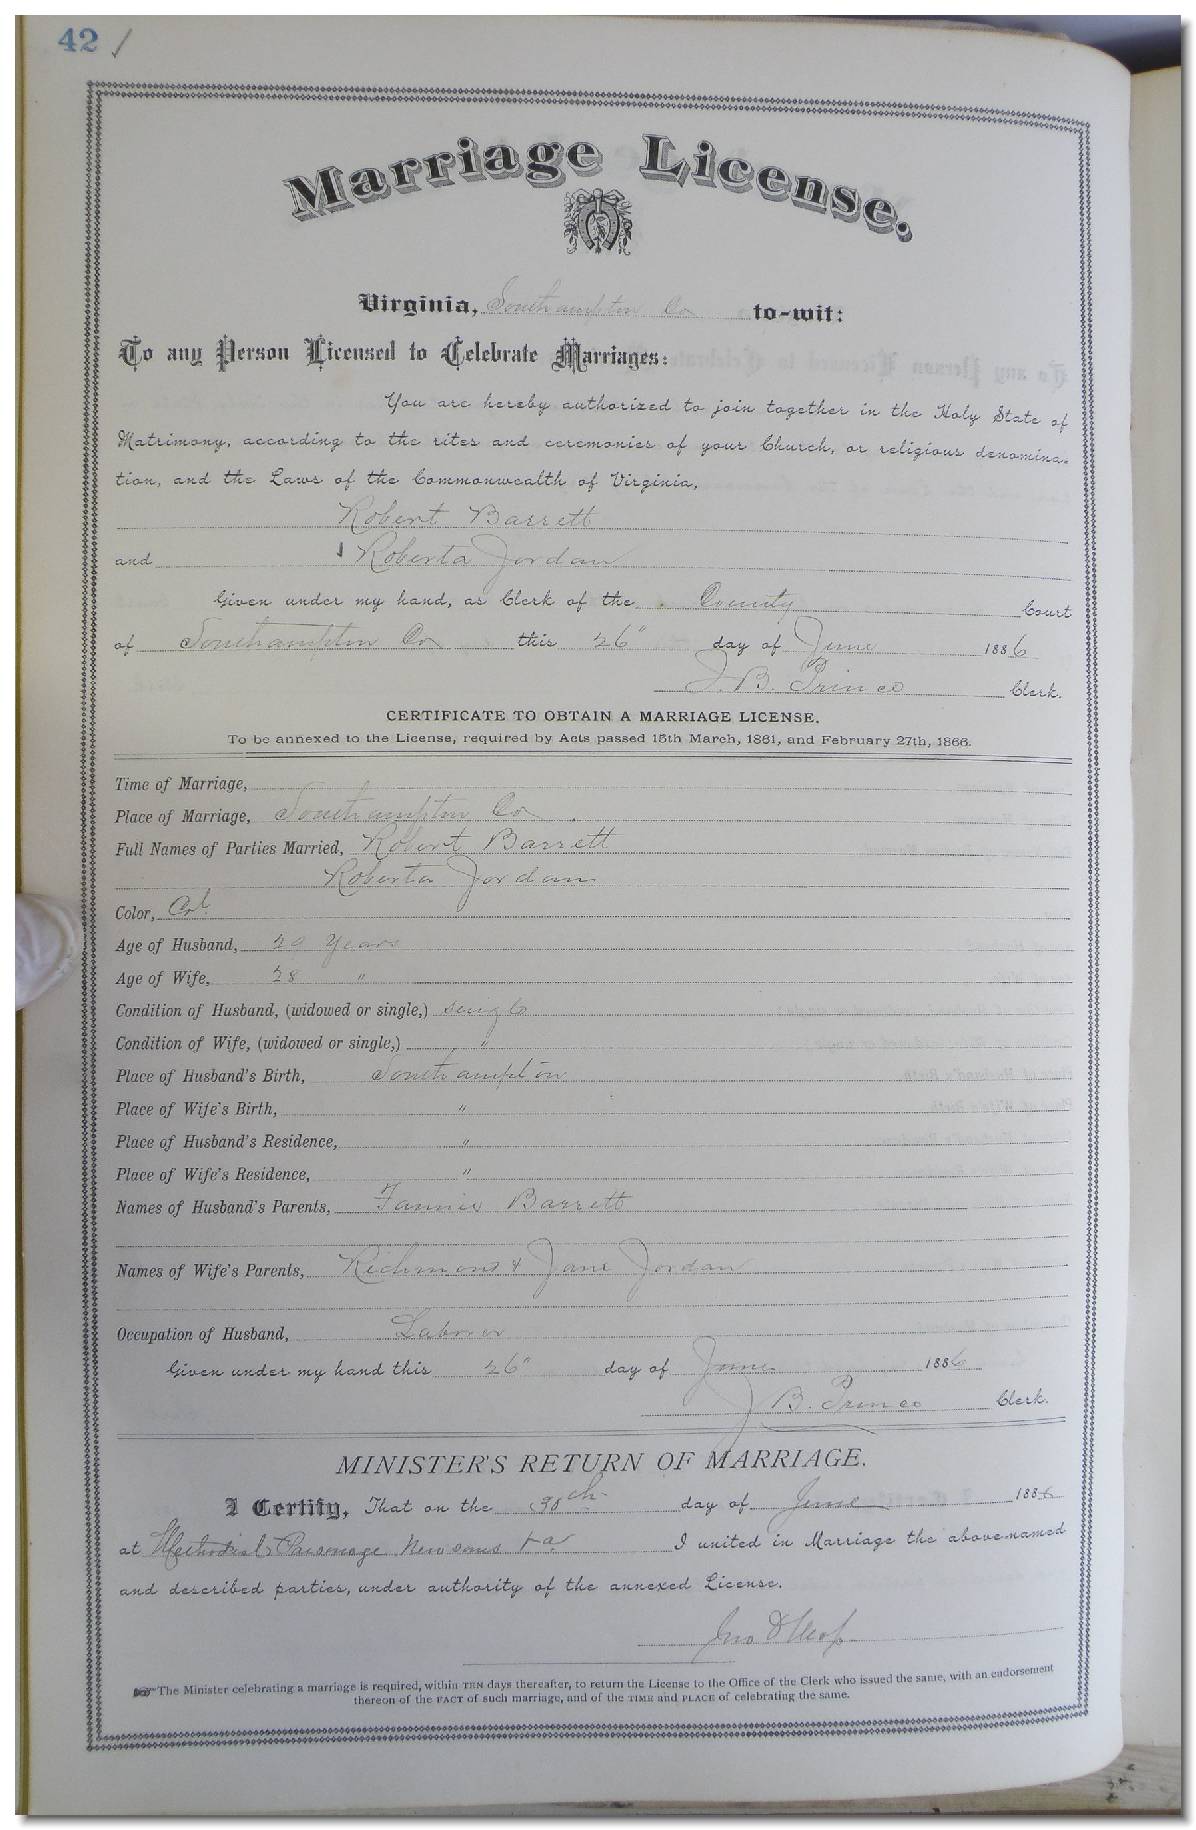 42
Marriage License.
Virginia, Southampton Co to-wit:
To any Person Licensed to Celebrate Marriages:
You are hereby authorized to join together in the Holy State of
Matrimony, according to the rites and ceremonies of your Church, or religious denomina-
tion, and the Laws of the Commonwealth of Virginia,
Robert Barrett
and Roberta Jordan
Given under my hand, as Clerk of the County Court
of Southampton Co this 26" day of June 1886
J. B. Prince Clerk.
CERTIFICATE TO OBTAIN A MARRIAGE LICENSE.
To be annexed to the License, required by Acts passed 15th March, 1861, and February 27th, 1866.
Time of Marriage,
Place of Marriage, Southampton Co
Full Names of Parties Married, Robert Barrett
Roberta Jordan
Color, Col.
Age of Husband, Years
Age of Wife, 28 "
Condition of Husband, (widowed or single,) single
Condition of Wife, (widowed or single,) "
Place of Husband's Birth, Southampton
Place of Wife's Birth, "
Place of Husband's Residence, "
Place of Wife's Residence, "
Names of Husband's Parents, Fannie Barrett
Names of Wife's Parents, Richmond & Jane Jordan
Occupation of Husband, Laborer
Given under my hand this 26" day of June 1886
J B. Prince Clerk.
MINISTER'S RETURN OF MARRIAGE.
I Certify, That on the 30th day of June 1886
at Methodist Parsonage Newsoms Va I united in Marriage the above-named
and described parties, under authority of the annexed License.
Jno
The Minister celebrating a marriage is required, within TEN days thereafter, to return the License to the Office of the Clerk who issued the same, with an endorsement
thereon of the FACT of such marriage, and of the TIME and PLACE of celebrating the same.